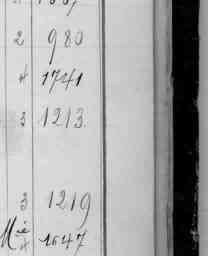 2 980
4 1741
3 1213.
3 1219
4 1647